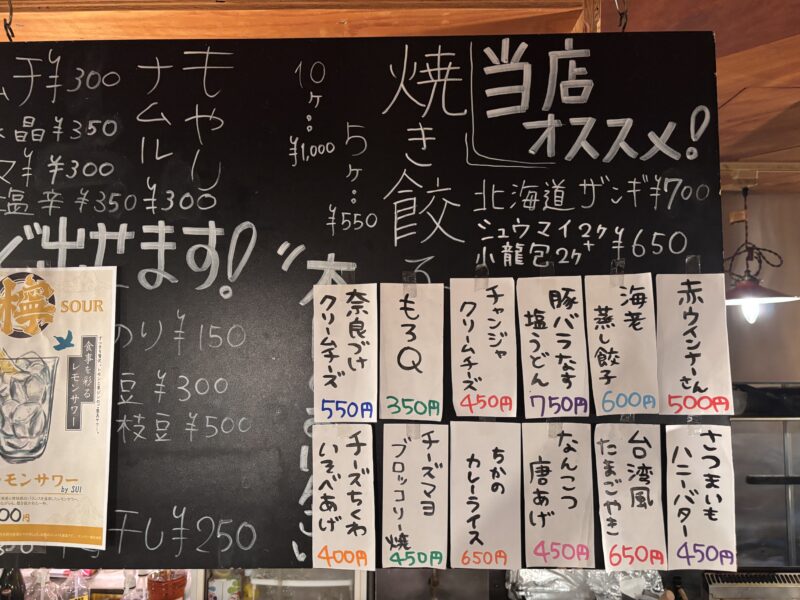 当店
オススメ!
北海道 ザンギ ¥700
シュウマイ2ケ+
小龍包2ケ
¥650
焼き餃
5ケ: ¥550
10ケ: ¥1,000
もやし
ナムル ¥300
ムチ ¥300
晶 ¥350
¥300
塩辛 ¥350
出せます!
のり ¥150
豆 ¥300
枝豆 ¥500
干し ¥250
赤ウインナーさん
500円
海老
蒸し餃子
600円
豚バラなす
塩うどん
750円
チャンジャ
クリームチーズ
450円
もろQ
350円
奈良づけ
クリームチーズ
550円
さつまいも
ハニーバター
450円
台湾風
たまごやき
650円
なんこつ
唐あげ
450円
ちかの
カレーライス
650円
チーズマヨ
ブロッコリー焼
450円
チーズちくわ
いそべあげ
400円
檸
SOUR
食事を彩る
レモンサワー
レモンサワー
by SUI
00円